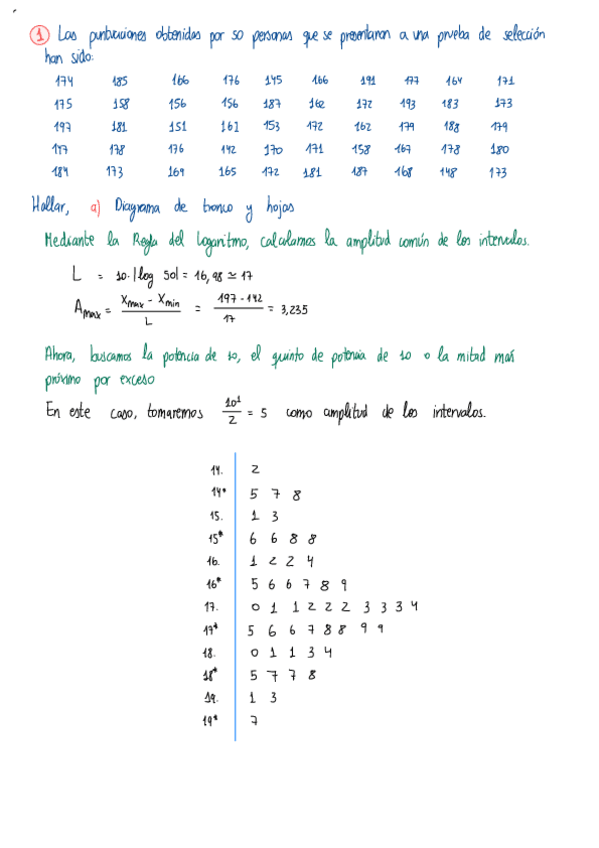 1 Las puntuaciones obtenidas por 50 personas que se presentaron a una prueba de selección
han sido:
174 185 166 176 145 166 191 177 164 171
175 158 156 156 187 162 172 193 183 173
197 181 151 161 153 172 162 179 188 179
178 176 142 170 171 158 167 178 180
184 173 169 165 172 181 187 168 148 173
Hallar, a) Diagrama de tronco y hojas
Mediante la Regla del Logaritmo, calculamos la amplitud común de los intervalos.
L = 10·|log 50| = 16,98 ≃ 17
Amax = Xmax - Xmin / L = 197-142 / 17 = 3,235
Ahora, buscamos la potencia de 10, el quinto de potencia de 10 o la mitad más
próximo por exceso
En este caso, tomaremos 10¹/2 = 5 como amplitud de los intervalos.
14. 2
14* 5 7 8
15. 1 3
15* 6 6 8 8
16. 1 2 2 4
16* 5 6 6 7 8 9
17. 0 1 1 2 2 2 3 3 3 4
17* 5 6 6 7 8 8 9 9
18. 0 1 1 3 4
18* 5 7 7 8
19. 1 3
19* 7